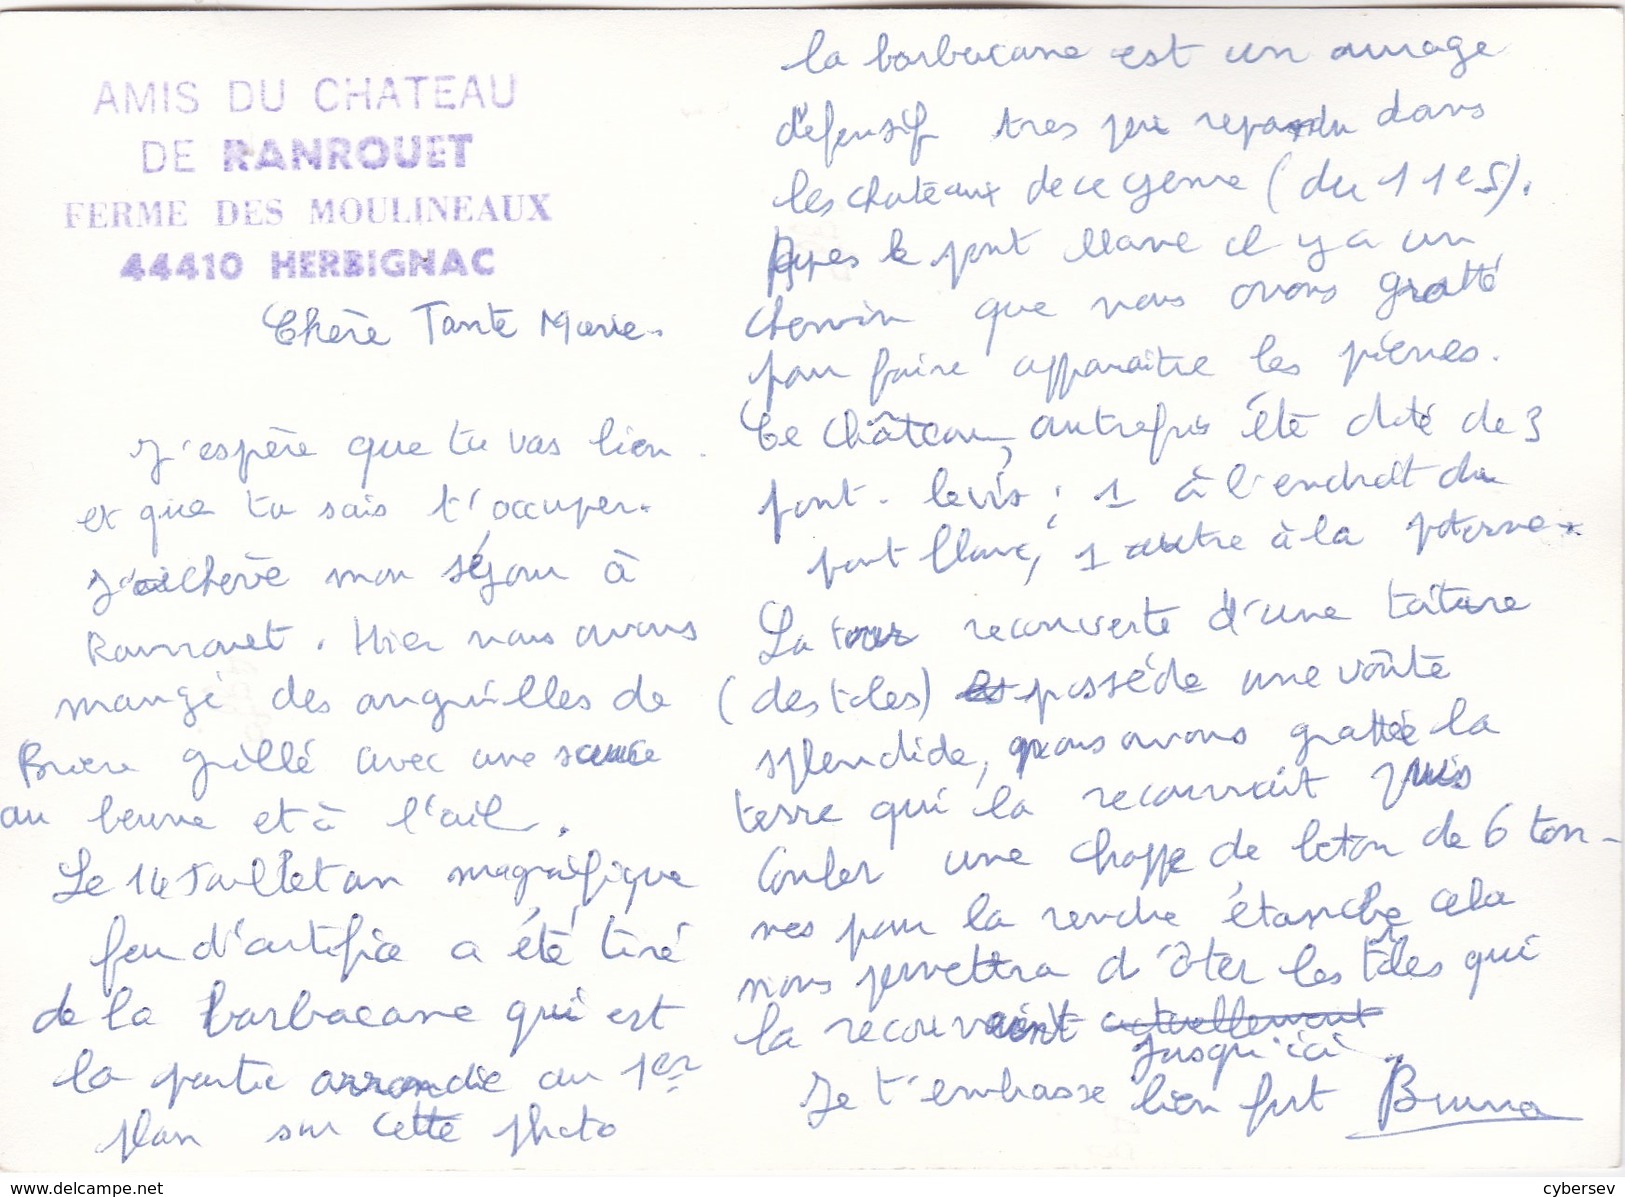 AMIS DU CHATEAU
DE RANROUET
FERME DES MOULINEAUX
44410 HERBIGNAC
Chère Tante Marie.
J'espère que tu vas bien.
et que tu sais t'occuper.
J'achève mon séjour à
Ranrouet. Hier nous avons
mangé des anguilles de
Briere grillé avec une sauce
au beurre et à l'ail.
Le 14 Juillet un magnifique
feu d'artifice a été tiré
de la barbacane qui est
la partie arrondie au 1er
plan sur cette photo
la barbacane est un ouvrage
défensif tres peu repandu dans
les chateaux de ce genre (du 11e S).
Apres le pont il y a un
chemin que nous avons gratté
pour faire apparaitre les pierres.
Ce château, autrefois été doté de 3
pont-levis ; 1 à l'endroit du
pont, 1 autre à la poterne.
La tour recouverte d'une toiture
(des tôles) possède une voûte
splendide, nous avons grattée la
terre qui la recouvrait puis
couler une chappe de beton de 6 ton-
nes pour la rendre étanche cela
nous permettra d'ôter les tôles qui
la recouvraient actuellement
jusqu'ici.
Je t'embrasse bien fort Bruno
www.delcampe.net
cybersev